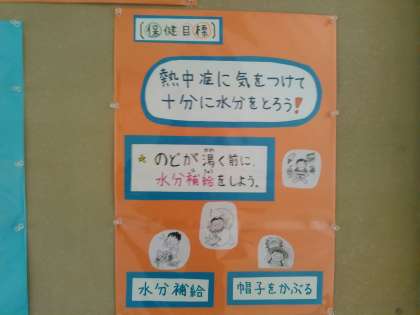 〔保健目標〕
熱中症に気をつけて
十分に水分をとろう！
★ のどが渇く前に、
水分補給をしよう。
水分補給
帽子をかぶる